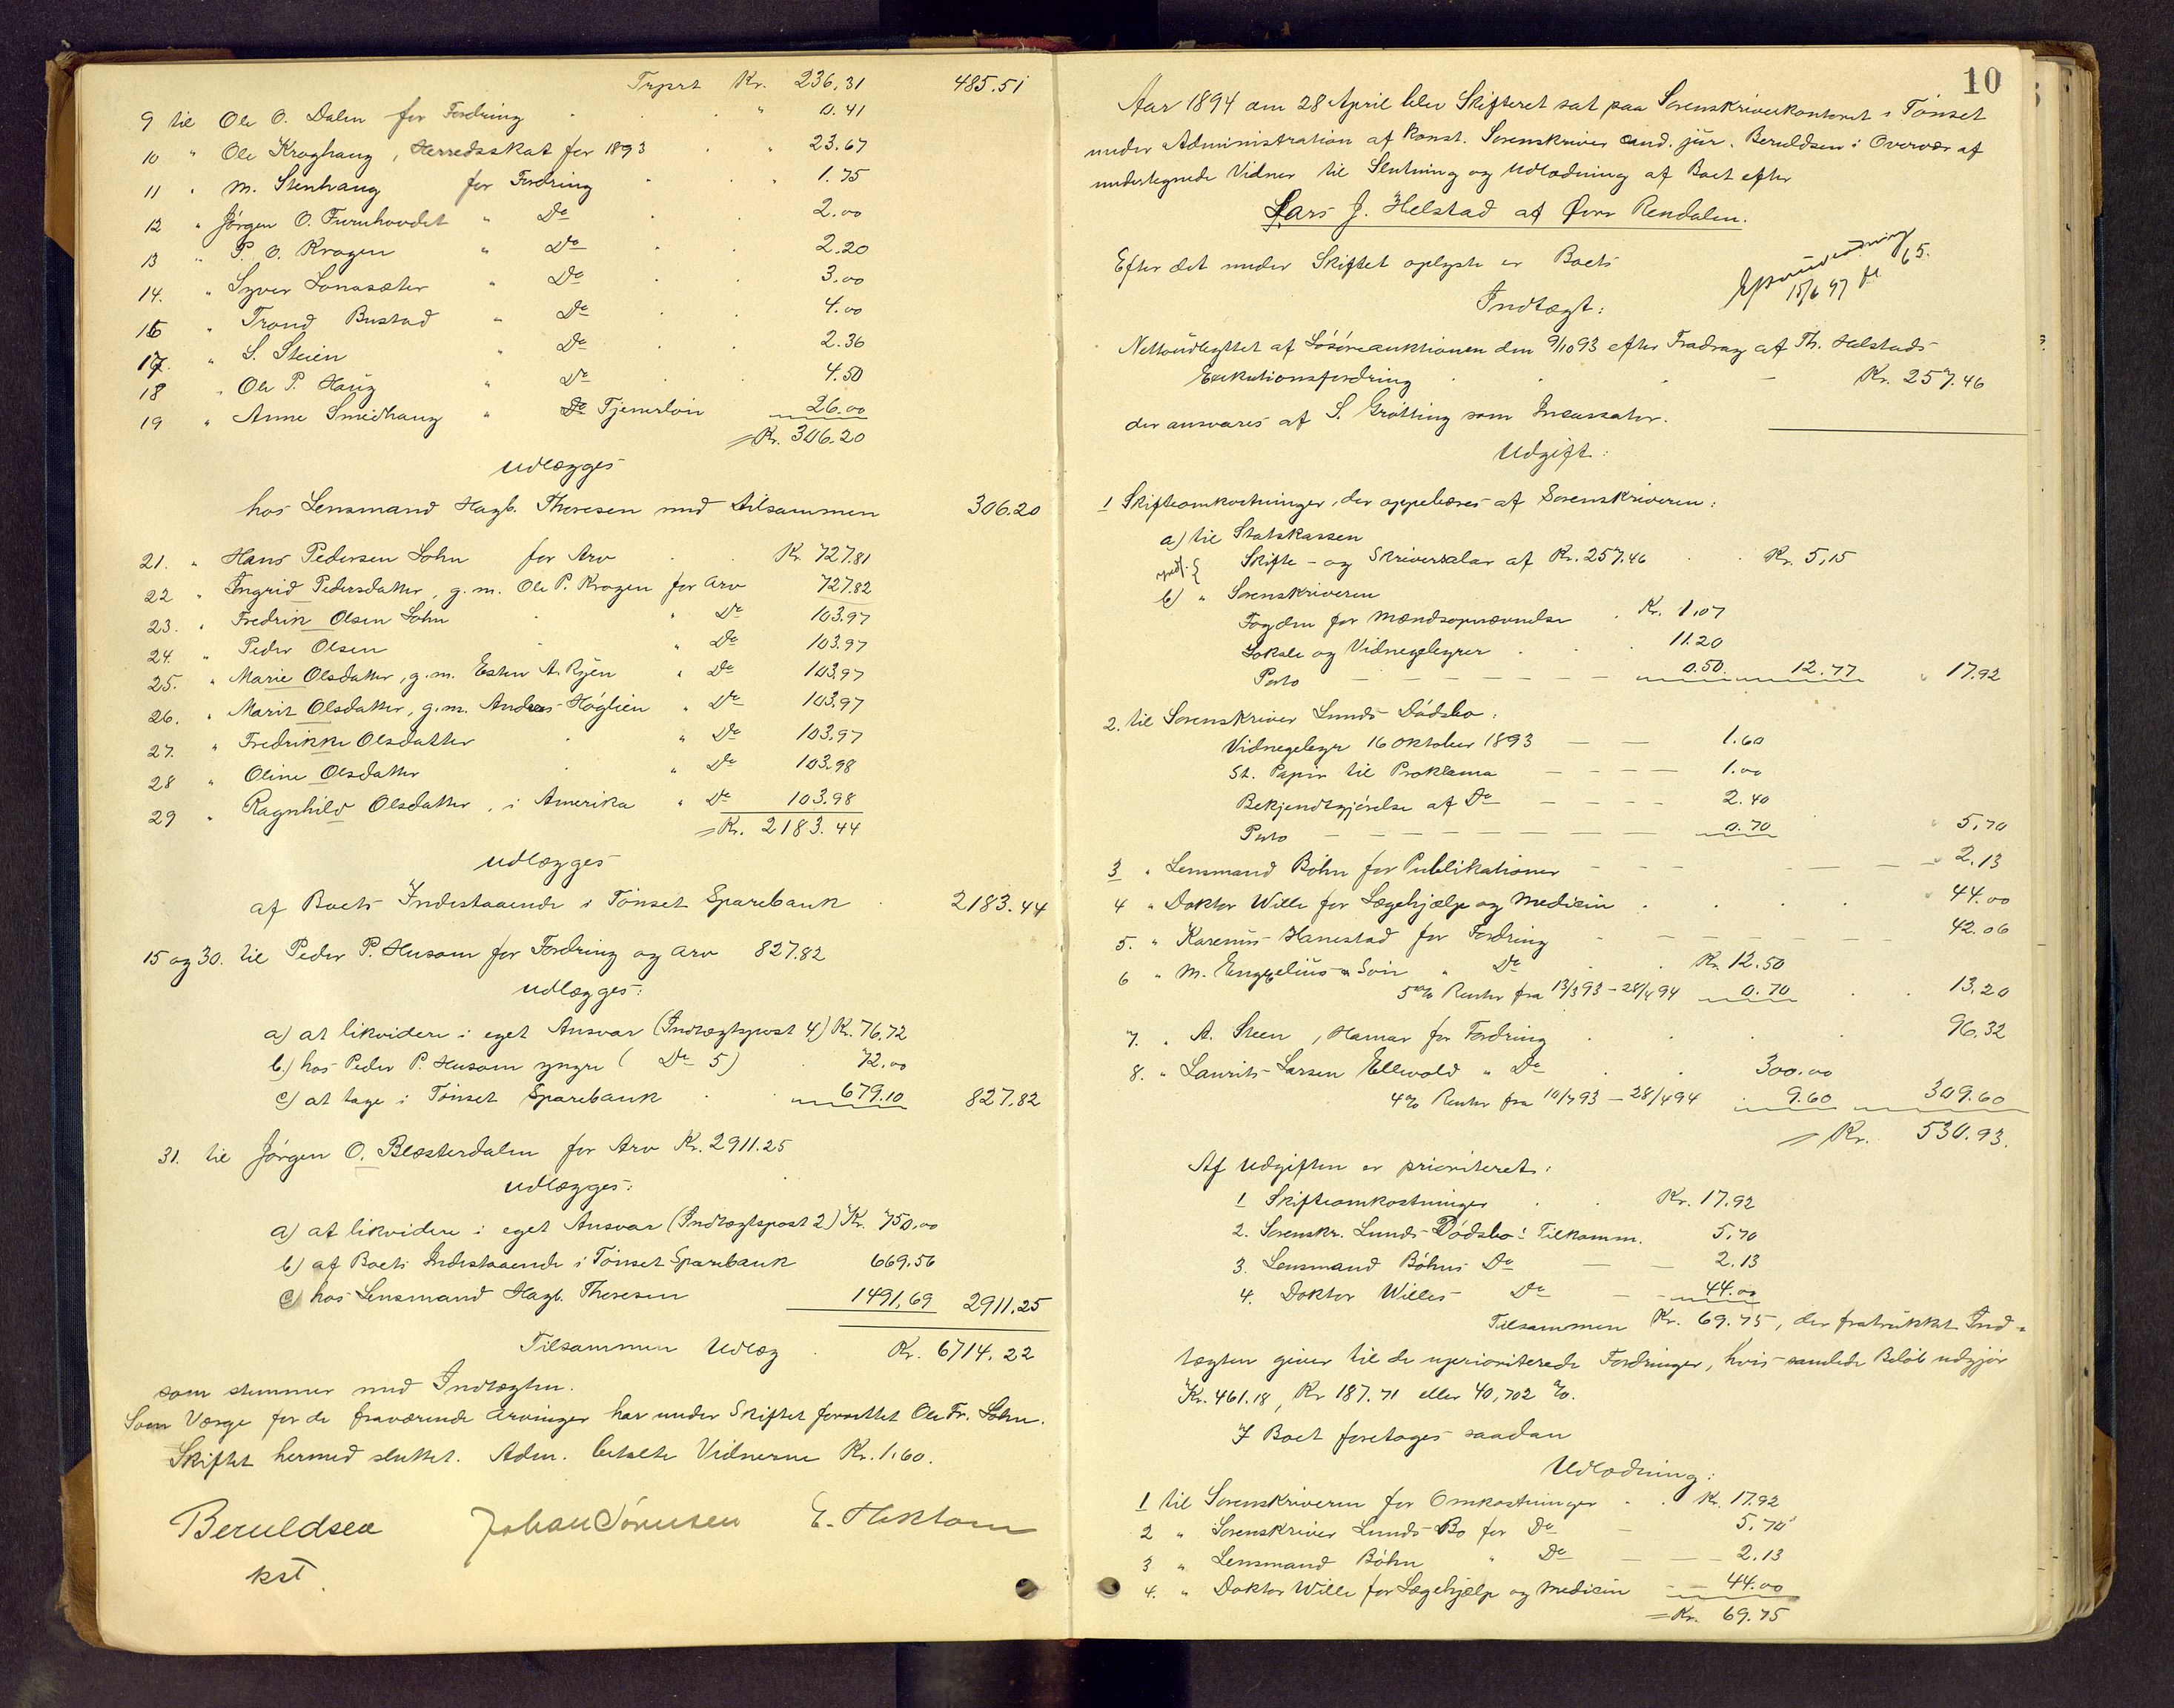 Trprt Kr. 236.31 485.51
9 til Ole O. Dalen for Fordring " 0.41
10 " Ole Kroghaug, Herredsskat for 1893 " 23.67
11 " M. Stenhaug for Fordring " 1.75
12 " Jørgen O. Furuhovdet " Do 2.00
13 " P. O. Krogen " Do 2.20
14. " Syver Lonasæter " Do 3.00
16 " Trond Bustad " Do 4.00
17. " S. Steien " Do 2.36
18 " Ole P. Haug " Do 4.50
19 " Anne Smedhaug " Do Tjenerløn 26.00
= Kr. 306.20
udlægges
hos Lensmand Hagb. Thoresen med tilsammen 306.20
21. " Hans Pedersen Lohn for Arv Kr. 727.81
22 " Ingrid Pedersdatter, g. m. Ole P. Krogen for Arv 727.82
23. " Fredrik Olsen Lohn " Do 103.97
24. " Peder Olsen " Do 103.97
25. " Marie Olsdatter, g. m. Esten A. Ryen " Do 103.97
26. " Marit Olsdatter, g. m. Andreas Høglien " Do 103.97
27. " Fredrikke Olsdatter " Do 103.97
28 " Oline Olsdatter " Do 103.98
29 " Ragnhild Olsdatter, i Amerika " Do 103.98
= Kr. 2183.44
udlægges
af Boets Indestaaende i Tønset Sparebank 2183.44
15 og 30. til Peder P. Husom for Fordring og Arv 827.82
udlægges:
a) at likvidere i eget Ansvar (Indtægtspost 4) Kr. 76.72
b) hos Peder P. Husom yngre ( Do 5) 72.00
c) at tage i Tønset Sparebank 679.10 827.82
31. til Jørgen O. Blæsterdalen for Arv Kr. 2911.25
udlægges:
a) at likvidere i eget Ansvar (Indtægtspost 2) Kr. 750.00
b) af Boets Indestaaende i Tønset Sparebank 669.56
c) hos Lensmand Hagb. Thoresen 1491,69 2911.25
Tilsammen Udlæg Kr. 6714.22
som stemmer med Indtægten.
Som Værge for de fraværende Arvinger har under Skiftet forrettet Ole Fr. Lohn.
Skiftet hermed sluttet. Adm. betalte Vidnerne Kr. 1.60.
Beruldsen Johan Sørensen E.
kst.
10
Aar 1894 den 28 April blev Skifteret sat paa Sorenskriverkontoret i Tønset
under Administration af konst. Sorenskriver cand. jur. Beruldsen i Overvær af
undertegnede Vidner til Slutning og Udlodning af Boet efter
Lars J. Helstad af Øvre Rendalen.
Efter det under Skiftet oplyste er Boets
15/6 97 fl. 65.
Indtægt:
Nettoudbyttet af Løsøreauktionen den 9/10 93 efter Fradrag af Th. Helstads
Exekutionsfordring Kr. 257.46
der ansvares af S. Grøtting som Incassator.
Udgift:
1 Skifteomkostninger, der oppebæres af Sorenskriveren:
a) til Statskassen
Skifte- og Skriversalar af Kr. 257.46 Kr. 5,15
b) " Sorenskriveren
Fogden for Mændsopnævnelse Kr. 1.07
Lokale og Vidnegebyrer 11.20
Porto 0.50 12.77 " 17.92
2. til Sorenskriver Lunds Dødsbo:
Vidnegebyr 16 Oktober 1893 1.60
St. Papir til Proklama 1.00
Bekjendtgjørelse af Do 2.40
Porto 0.70 " 5.70
3 " Lensmand Bøhn for Publikationer " 2.13
4 " Doktor Wille for Lægehjælp og Medicin " 44.00
5. " Karenius Hanestad for Fordring 42.06
6 " M. Enggelius & Søn " Do Kr. 12.50
5 % Renter fra 13/3 93 – 28/4 94 0.70 13.20
7. " A. Steen, Hamar for Fordring 96.32
8. " Laurits Larsen Ellevold " Do 300.00
4 % Renter fra 10/7 93 – 28/4 94 9.60 309.60
= Kr. 530.93.
Af Udgiften er prioriteret:
1 Skifteomkostninger Kr. 17.92
2. Sorenskr. Lunds Dødsbo's Tilkomm. 5.70
3. Lensmand Bøhns Do 2.13
4. Doktor Willes Do 44.00
Tilsammen Kr. 69.75, der fratrukket Ind-
tægten giver til de uprioriterede Fordringer, hvis samlede Beløb udgjør
Kr. 461.18, Kr. 187.71 eller 40,702 %.
I Boet foretoges saadan
Udlodning:
1 til Sorenskriveren for Omkostninger Kr. 17.92
2 " Sorenskriver Lunds Bo for Do 5.70
3 " Lensmand Bøhn " Do 2.13
4. " Doktor Wille for Lægehjælp og Medicin 44.00
= Kr. 69.75